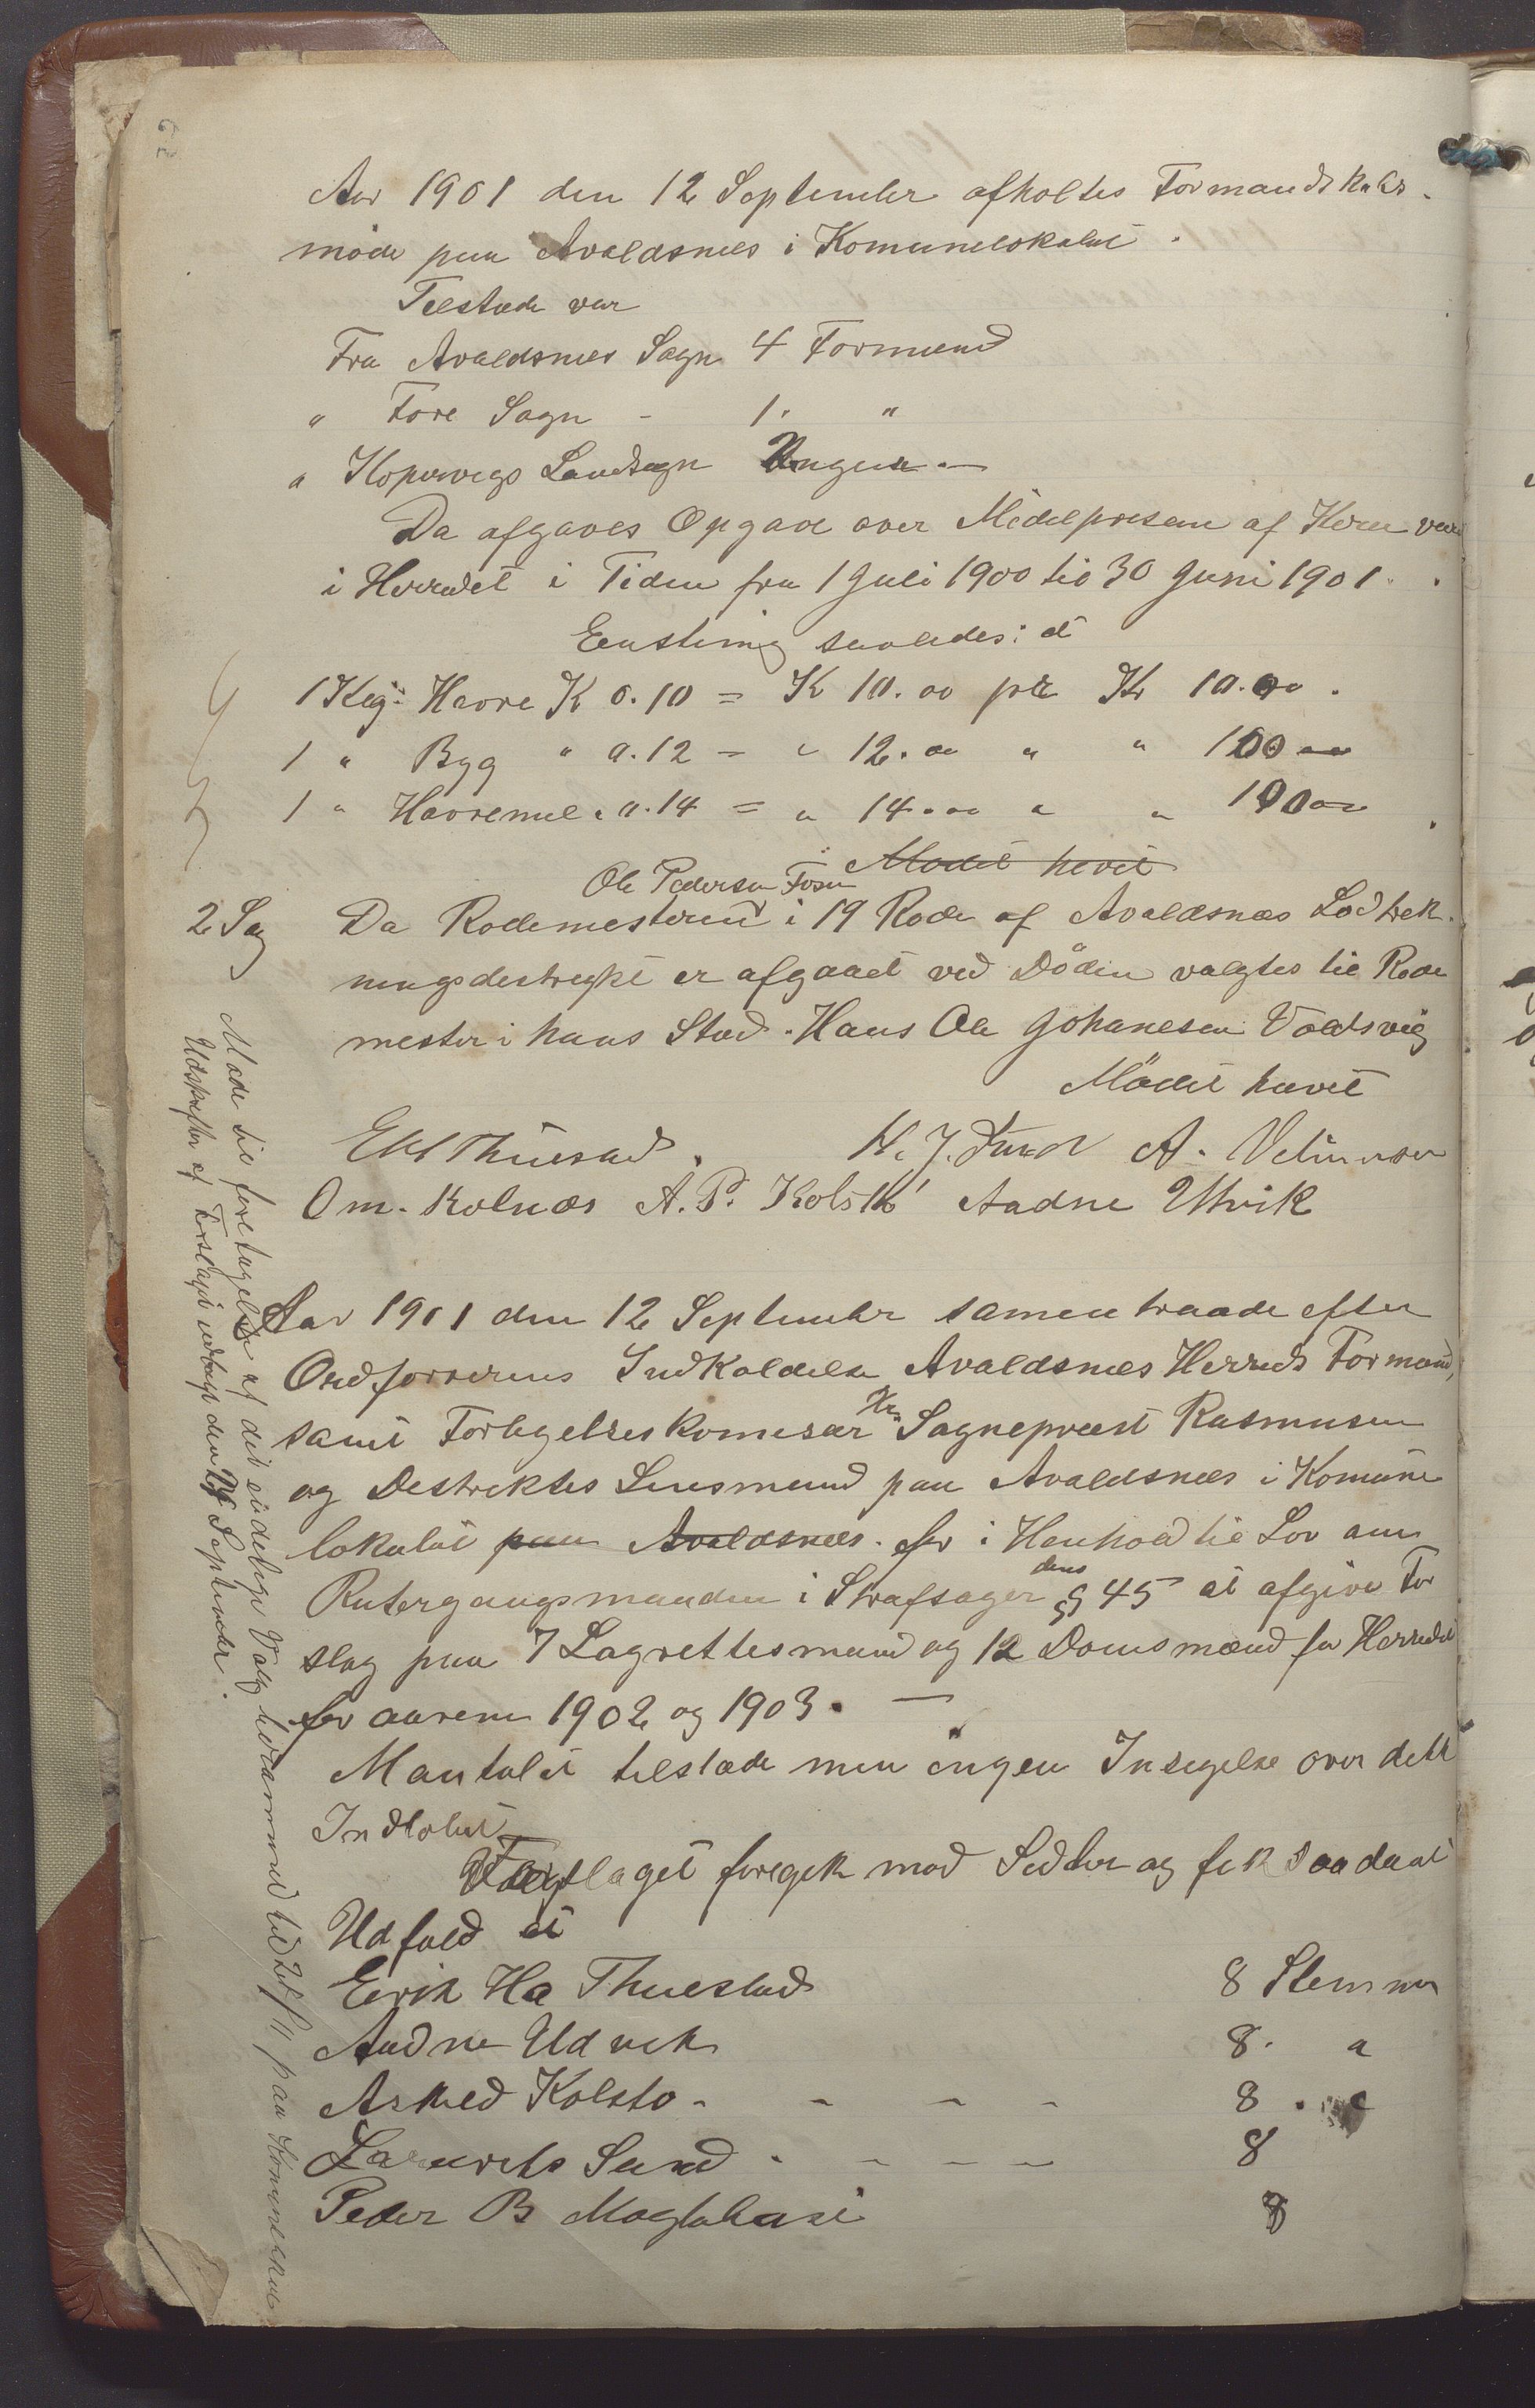 Aar 1901 den 12 September afholtes Formandskabs-
møde paa Avaldsnes i Komunelokalet.
Telstæde var
Fra Avaldsnes Sogn 4 Formænd
" Fore Sogn - 1. "
" Kopervigs Landsogn Ingen —
Da afgaves Opgave over Middelprisen af
i Herredet i Tiden fra 1 Juli 1900 til 30 Juni 1901.
Eenstemig saaledes: at
1 Kilg: Havre K 0.10 = K 10.00 pr Kr 10.00.
1 " Byg " 0.12 = " 12.00 " " 100
1 " Havremel " 0.14 = " 14.00 " " 100
Mødet hevet
Ole Pedersen Fosen
2 Sag Da Rodemesteren i 19 Rode af Avaldsnes Lodtræk-
ningsdestrykt er afgaaet ved Döden valgtes til Rode
mester i hans Sted. Hans Ole Johanesen Voldsvig
Mödet hævet
E H Thuestad. H. J. Sund A. Velin
O m. Kolnæs A. P. Kolstö Aadne Utvik
Aar 1901 den 12 September samentraade efter
Ordførerens Indkaldelse Avaldsnes Herreds Formænd,
samt Forligelseskomesær Hr. Sognepræst Rasmusen
og Destriktes Lensmand paa Avaldsnes i Komune
lokalet paa Avaldsnes. for i Henhold til Lov om
Rutergangsmaaden i Strafsager dens § 45 at afgive For
slag paa 7 Lagrettesmænd og 12 Domsmænd for Herredet
for aarene 1902 og 1903. —
Mantalet telstæde men ingen Insigelse over dette
Indløbet
Forslaget foregik med Sedler og fik saadant
Udfald at
Eerik Ha Thuestad 8 Stemmer
Aadne Udvik 8. "
Askild Kolsto - - - - 8. "
Laurits Sund - - - - 8
Peder B Mogtabase 8
Møde til foretagelse af det endelige Valg berammed til 21/11 paa Komunelokale
Udskrefter af Forslaget udlagt den 24 September.